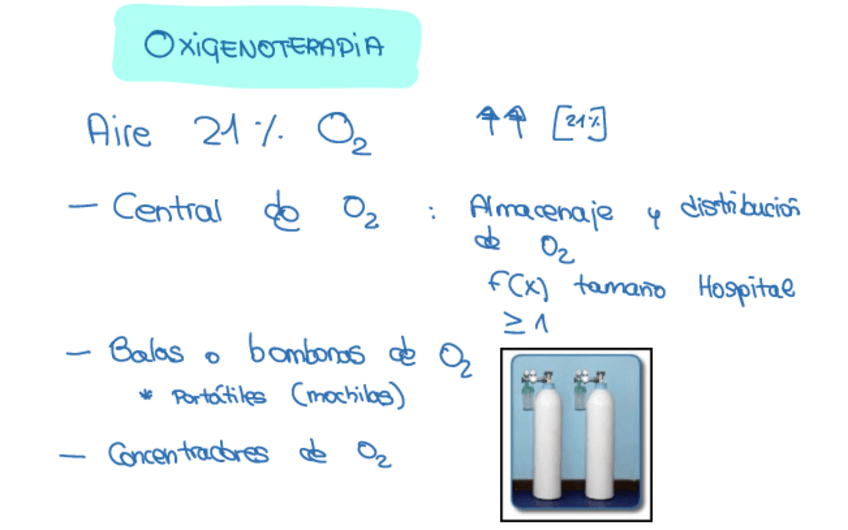 OXIGENOTERAPIA
Aire 21% O₂ ↑↑ [21%]
– Central de O₂ : Almacenaje y distribución
de O₂
f(x) tamaño Hospital
≥ 1
– Balas o bombonas de O₂
* Portátiles (mochilas)
– Concentradores de O₂